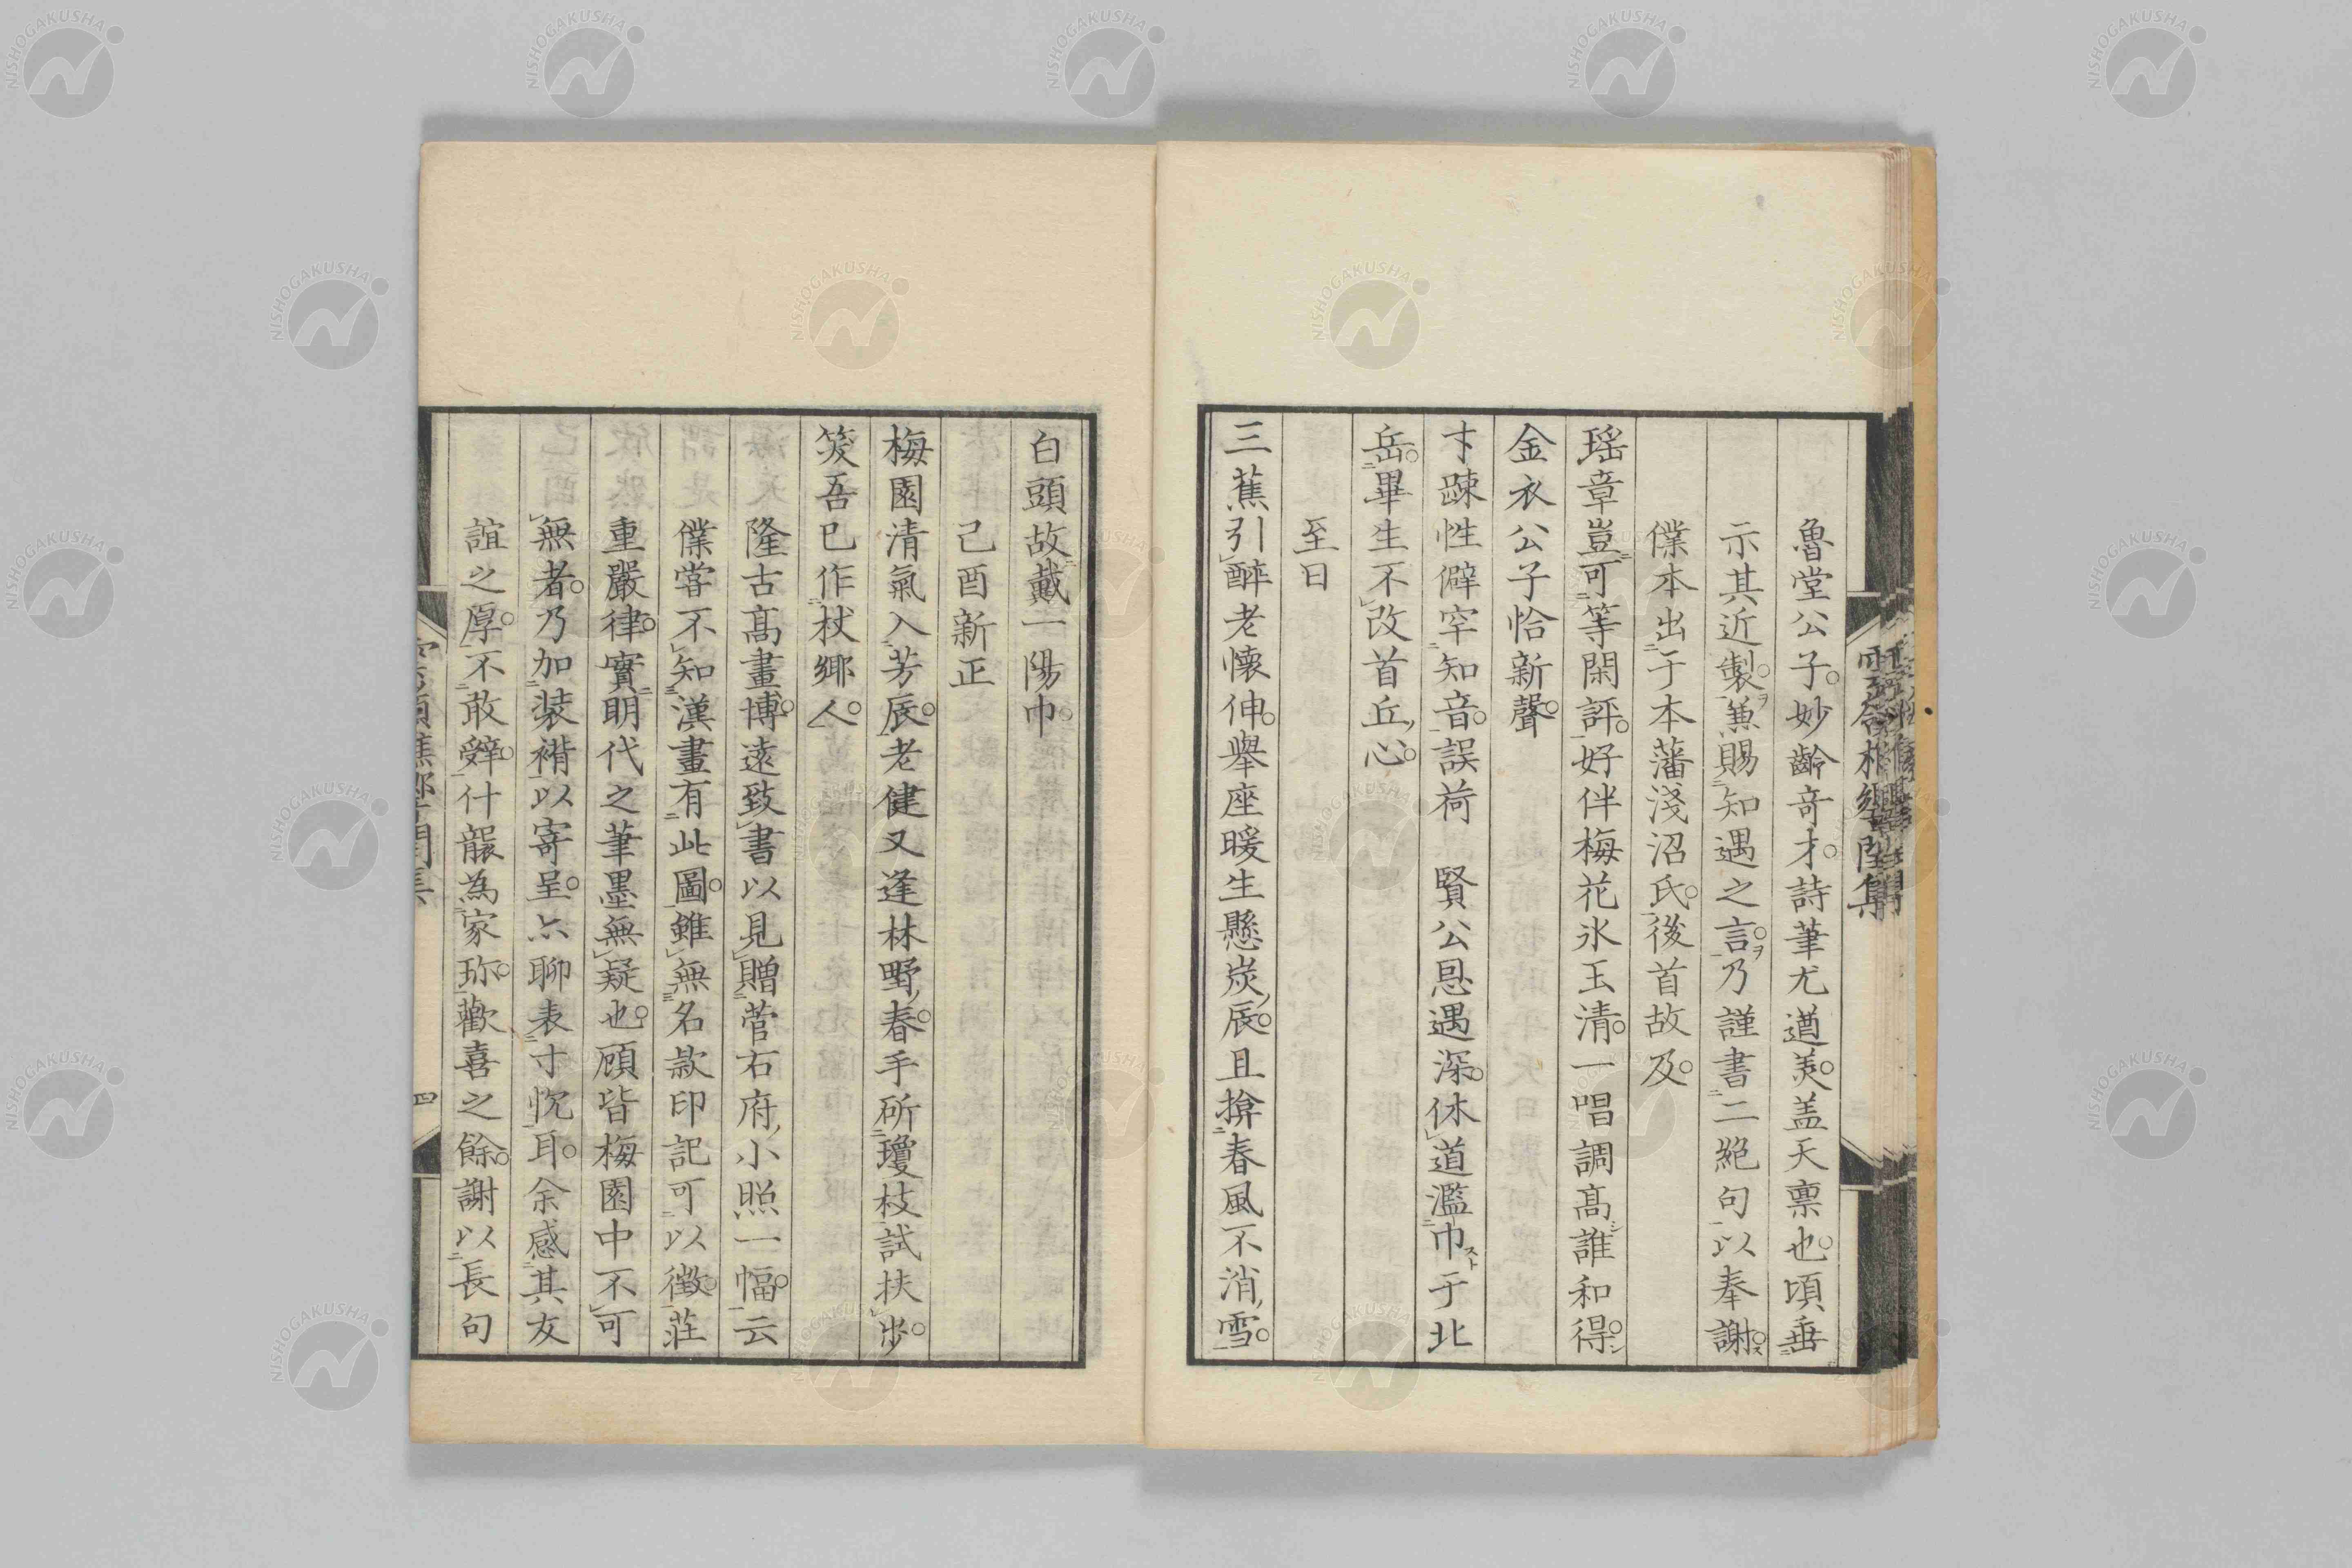 魯堂公子。妙齡奇才。詩筆尤遒美。盖天禀也。頃垂
示其近製。兼賜知遇之言。乃謹書二絕句以奉謝。
僕本出于本藩淺沼氏。後首故及。
瑤章豈可等閑評。好伴梅花氷玉清。一唱調高誰和得。
金衣公子恰新聲。
才疎性僻罕知音。誤荷 賢公恩遇深。休道濫巾于北
岳。畢生不改首丘心。
至日
三蕉引醉老懷伸。舉座暖生懸炭辰。且揜春風不消雪。
白頭故戴一陽巾。
己酉新正
梅園清氣入芳辰。老健又逢林野春。手斫瓊枝試扶步。
笑吾已作杖鄉人。
隆古高畫博。遠致書以見贈菅右府小照一幅。云
僕嘗不知漢畫有此圖。雖無名款印記可以徵。莊
重嚴律。實明代之筆墨無疑也。顧皆梅園中不可
無者。乃加装褙以寄呈。亦聊表寸忱耳。余感其友
誼之厚。不敢辭。什襲為家珎。歡喜之餘。謝以長句
四
NISHOGAKUSHA